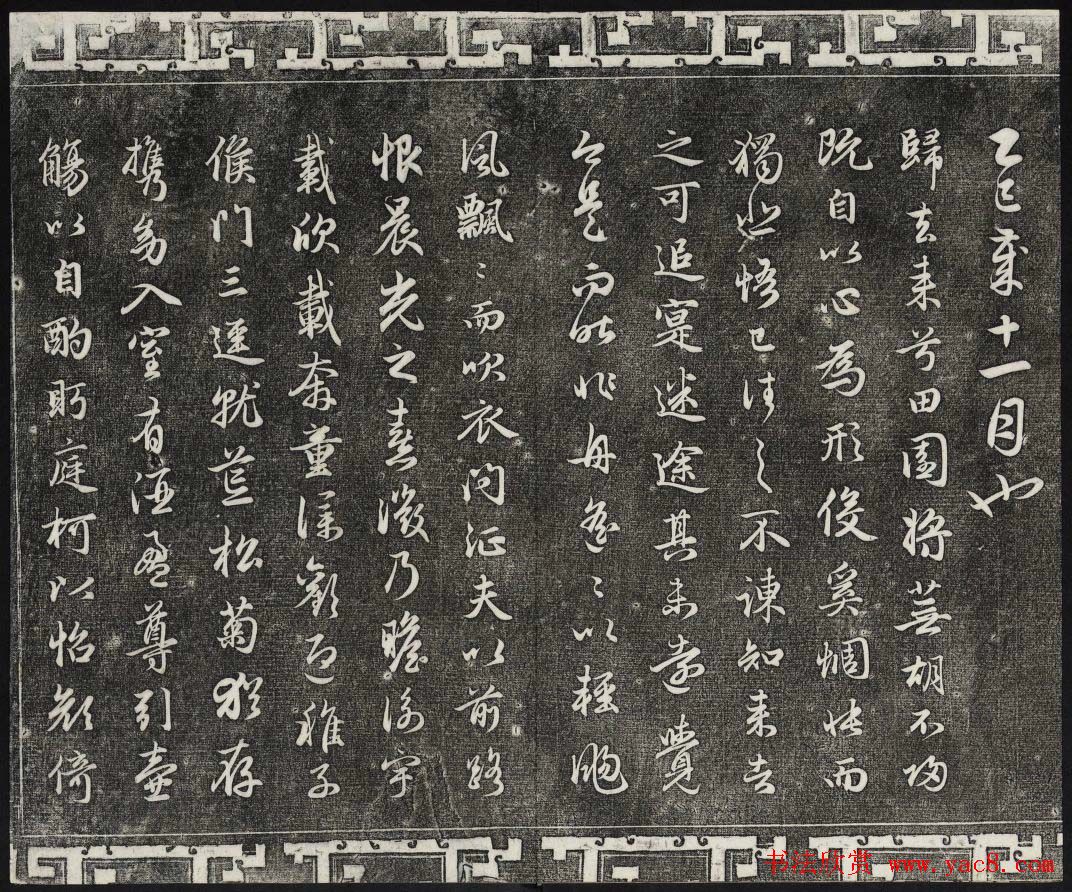 乙巳歲十一月也
歸去来兮田園将蕪胡不歸
既自以心為形役奚惆悵而
獨悲悟已往之不諫知来者
之可追寔迷途其未遠覺
今是而昨非舟遙〻以輕颺
風飄〻而吹衣問征夫以前路
恨晨光之熹微乃瞻衡宇
載欣載奔童僕歡迎稚子
候門三逕就荒松菊猶存
携幼入室有酒盈尊引壺
觴以自酌眄庭柯以怡顏倚
书法欣赏 www.yac8.com